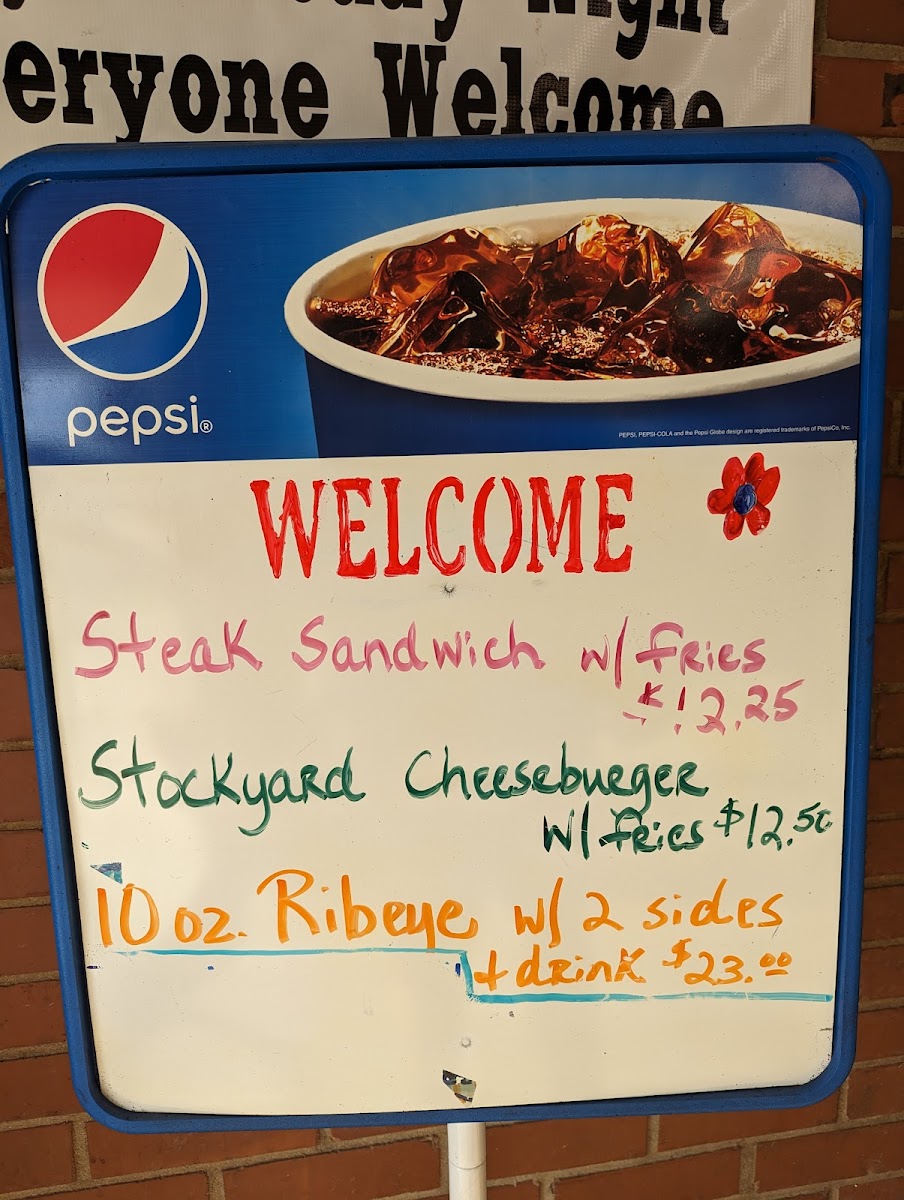 Night
eryone Welcome
pepsi®
PEPSI, PEPSI-COLA and the Pepsi Globe design are registered trademarks of PepsiCo, Inc.
WELCOME
Steak Sandwich w/ fries
$12.25
Stockyard Cheeseburger
w/ fries $12.50
10 oz. Ribeye w/ 2 sides
+ drink $23.00